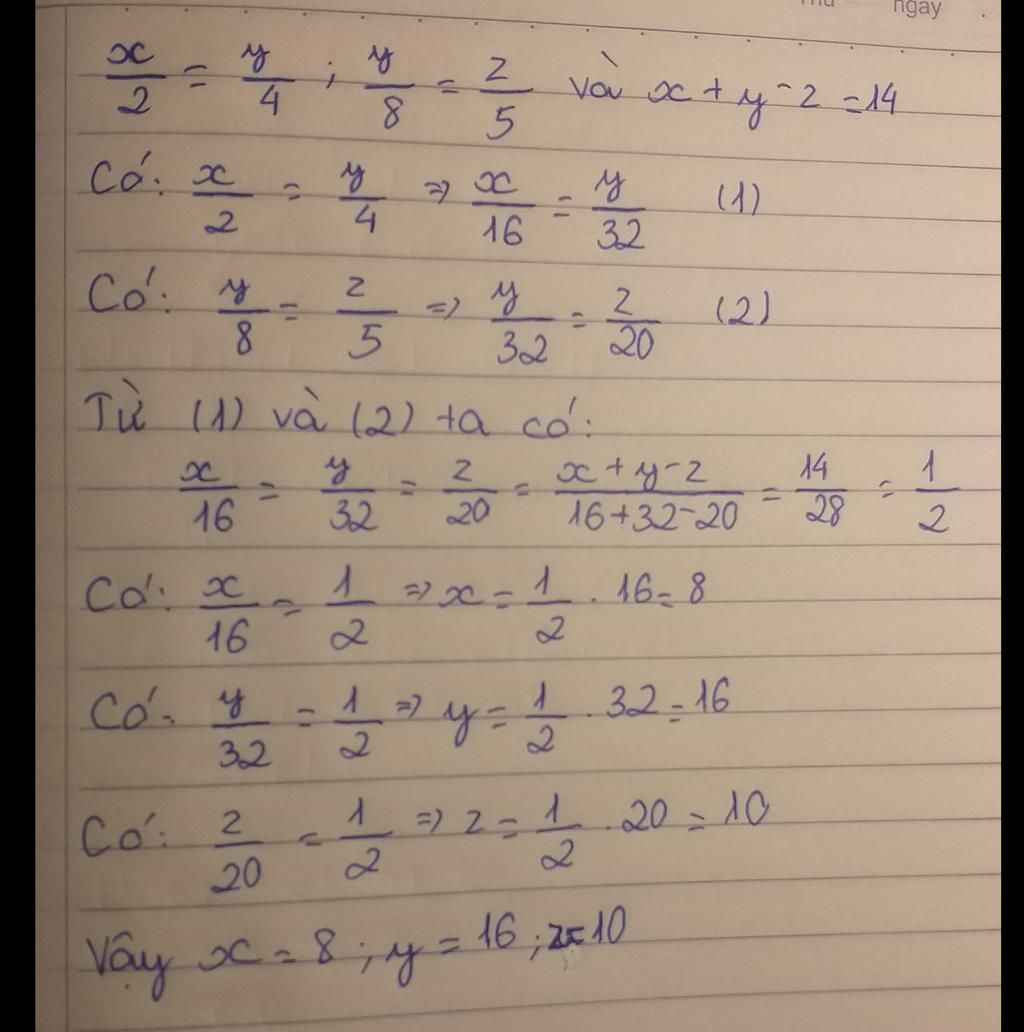 ngày
x/2 = y/4 ; y/8 = z/5 và x + y - z = 14
Có: x/2 = y/4 => x/16 = y/32 (1)
Có: y/8 = z/5 => y/32 = z/20 (2)
Từ (1) và (2) ta có:
x/16 = y/32 = z/20 = x + y - z/16 + 32 - 20 = 14/28 = 1/2
Có: x/16 = 1/2 => x = 1/2 . 16 = 8
Có: y/32 = 1/2 => y = 1/2 . 32 = 16
Có: z/20 = 1/2 => z = 1/2 . 20 = 10
Vậy x = 8 ; y = 16 ; z = 10